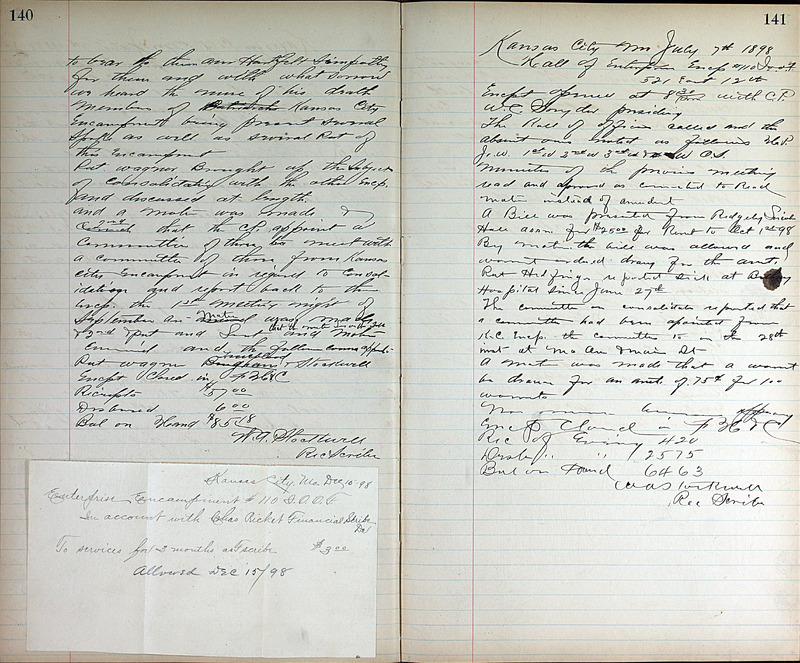 140
to bear to them our Heartfelt Sympathy
for them and with what sorrow
we heard the news of his death
members of Kansas City
Encampment being present several
spoke as well as several Pat of
this Encampment
Pat Wagner Brought up the Subject
of consolidating with the other Encp.
and discussed at length.
and a motion was made &
2nd that the C.P. appoint a
Committee of three to meet with
a committee of three from Kansas
City Encampment in regard to Consol
idation and report back to the
Encp. the 1st meeting night of
September an motion was made
and
and the
Pat Wagner Bingham & Stockwell
Encpt Closed in F H & C
Reciepts 5.00
Disbursed 6.00
Bal on Hand $85.18
W. A. Stockwell
Rec Scribe
Kansas City, Mo. Dec 15-98
Enterprise Encampment # 110 I.O.O.F
In account with Chas Ricket Financial Scribe
Dr
To services for 3 months as F scribe $3.00
Allowed DEC 15/98
141
Kansas City Mo July 7th 1898
Hall of Enterprise Encp #110 I.O.O.F
521 East 12th
Encpt opened at 8 30 with C.P.
W.C. Snyder presiding
The Roll of officers called and the
absent ones noted as follows H.P.
J.W. 1st W 2nd W 3rd W
minutes of the previous meeting
read and approved as corrected to Read
motion instead of amendment
A Bill was presented from Ridgely
Hall assn. for $25.00 for Rent to Oct 1st 98
By motion the bill was allowed and
warrant ordered drawn for the amt,
Pat reported sick at
Hospital since June 27th
The committee on consolidation reported that
a committee had been apointed from
K.C. Encp. the committee to on the 28th
inst at Mo Ave & Main St
A motion was made that a warrant
be drawn for an amt. of 75¢ for 100
warrants
No business appearing
Encpt Closed in F H & C
Rec of Evening 4 20
Disb " " 25 75
Bal on Hand 64 63
W A Stockwell
Rec Scribe